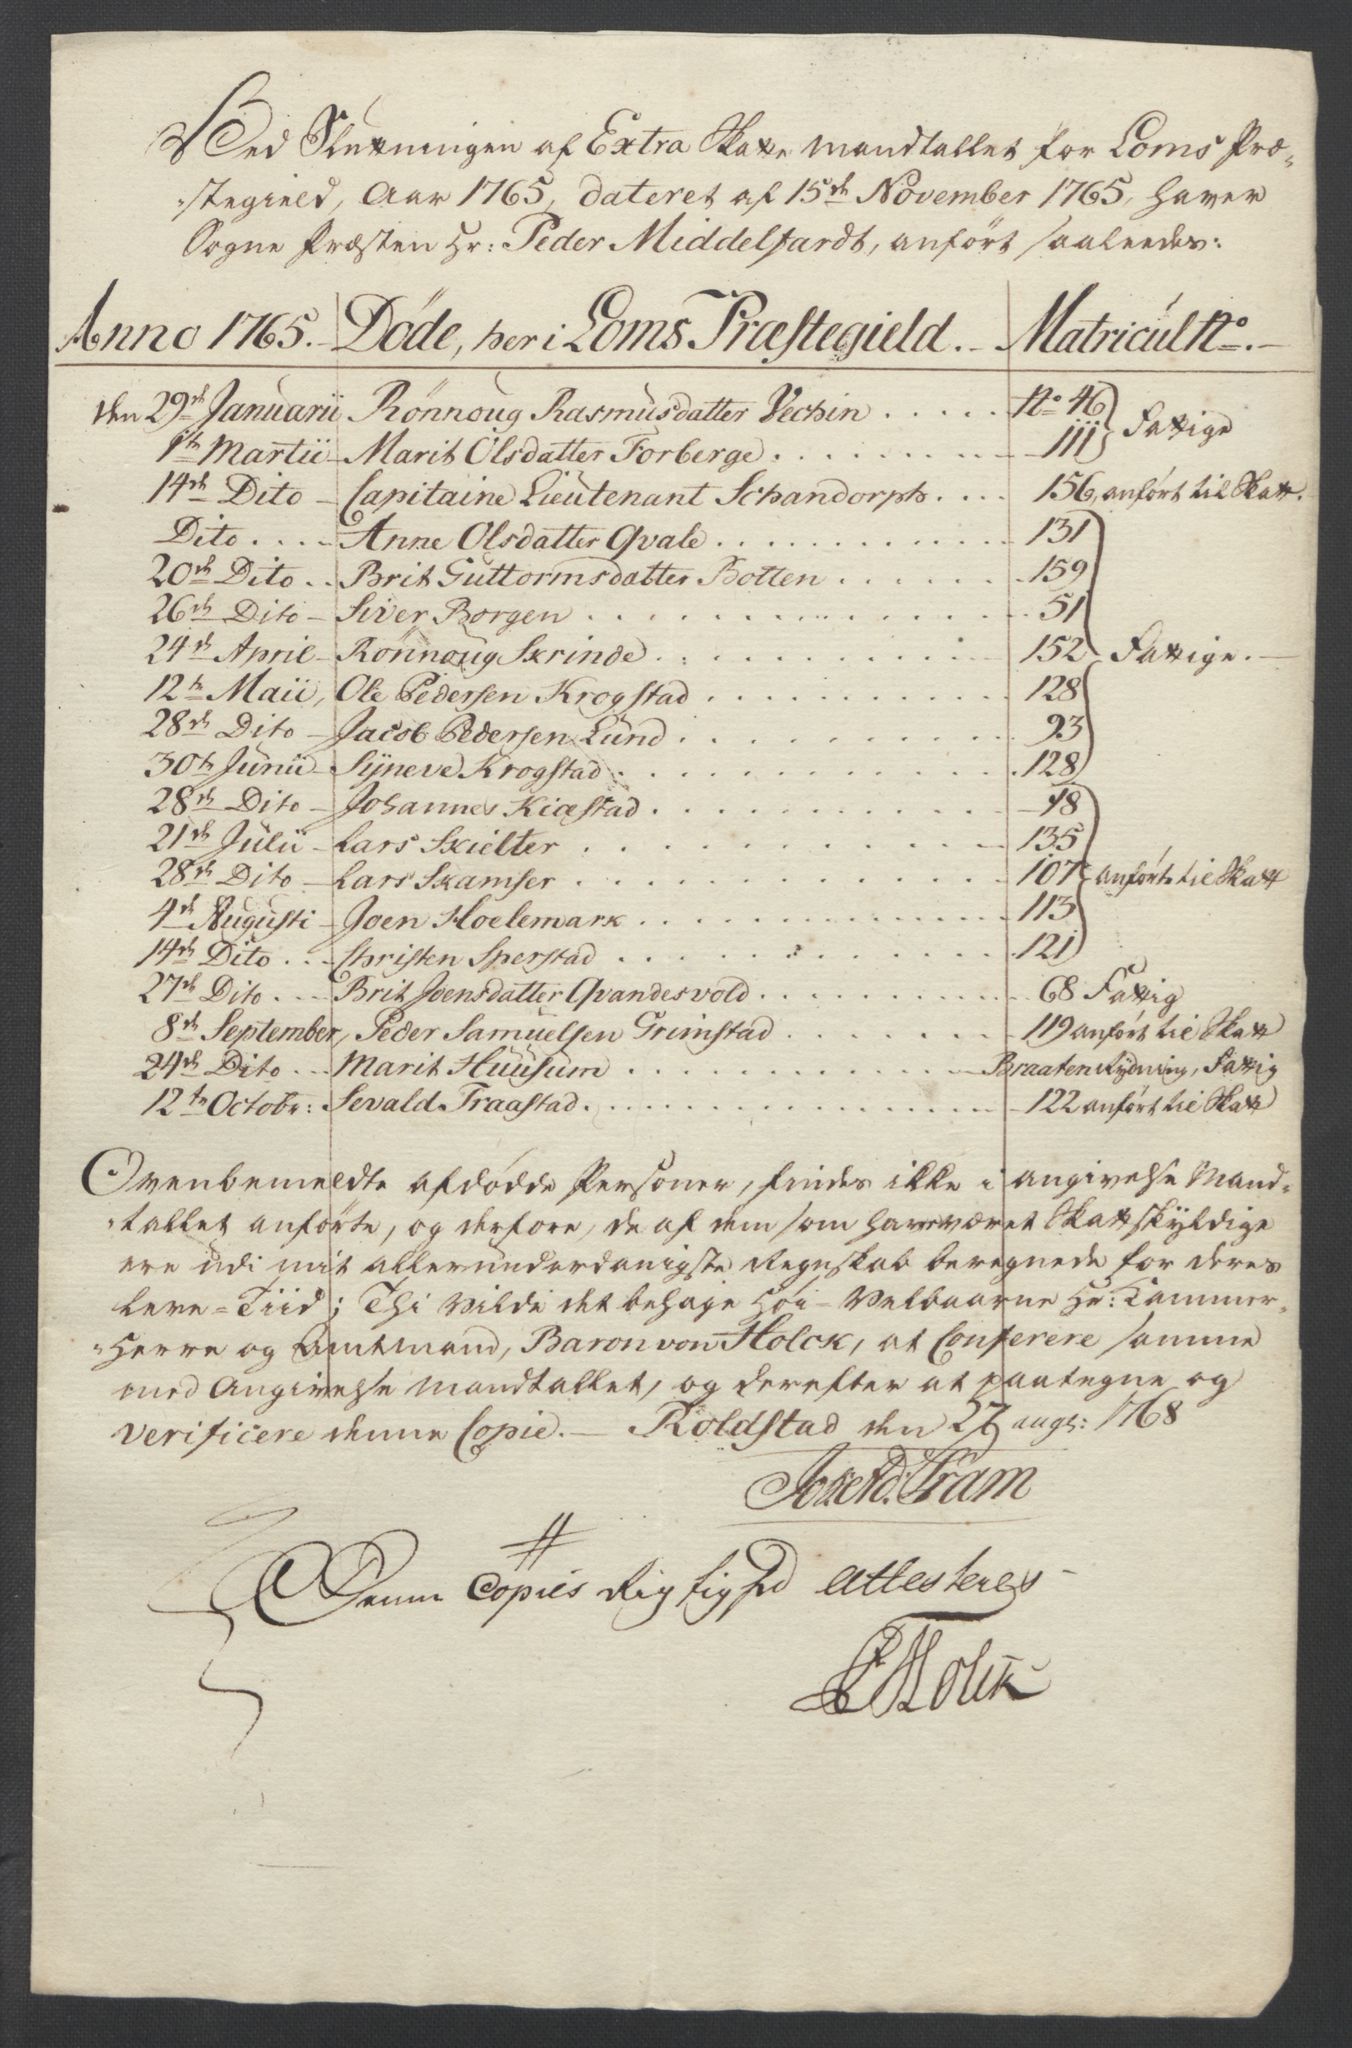 Ved Slutningen af Extra Skatte Mandtallet for Loms Præ-
stegield, Aar 1765, dateret af 15de November 1765, haver
Sogne Præsten Hr: Peder Middelfardt, anført saaleedes:
Anno 1765. - Døde, her i Loms Præstegield. - Matricul No. -
den 29de Januarii Rønnoug Rasmusdatter Vechin ..... No 46 } Fattige
1te Martii - Marit Olsdatter Forberge ........ 111
14de Dito - Capitaine Lieutenant Schandorph .... 156, anført til Skatt.
Dito .... Anne Olsdatter Qvale ........... 131
20de Dito .. Brit Guttormsdatter Botten ...... 159
26de Dito - Siver Borgen .......... 51
24de April - Rønnoug Skrinde ........ 152 } Fattige. -
12te Maii, Ole Pedersen Krogstad ....... 128
28de Dito - Jacob Pedersen Lund ........ 93
30te Junii - Sÿneve Krogstad .......... 128
28de Dito - Johannes Kiæstad ........ 18
21de Julii - Lars Skielter .......... 135
28de Dito - Lars Skamser .......... 107 } anført til Skatt
4de Augusti - Joen Hoelemark ......... 113
14de Dito ... Christen Sperstad ......... 121
27de Dito .... Brit Joensdatter Qvandesvold ......... 68 Fattig
8de September, Peder Samuelsen Grimstad ...... 119 anført til Skatt
24de Dito ... Marit Huusum .......... Braaten Rydning, Fattig
12te Octobr: Sevald Traastad ........... 122 anført til Skatt
Ovenbemeldte afdødde Personer, findes ikke i Angivelse Mand-
tallet anførte, og derfore, de af dem som have været Skattskyldige
ere udi mit allerunderdanigste Regnskab beregnede for deres
Leve-Tiid; Thi vilde det behage Høi-Velbaarne Hr: Kammer-
Herre og Amtmand, Baron von Holck, at Conferere samme
med Angivelse Mandtallet, og derefter at paategne og
verificere denne Copie. - Roldstad den 27 augs: 1768
Fram
Denne Copies Rigtighed attesteres
Holck